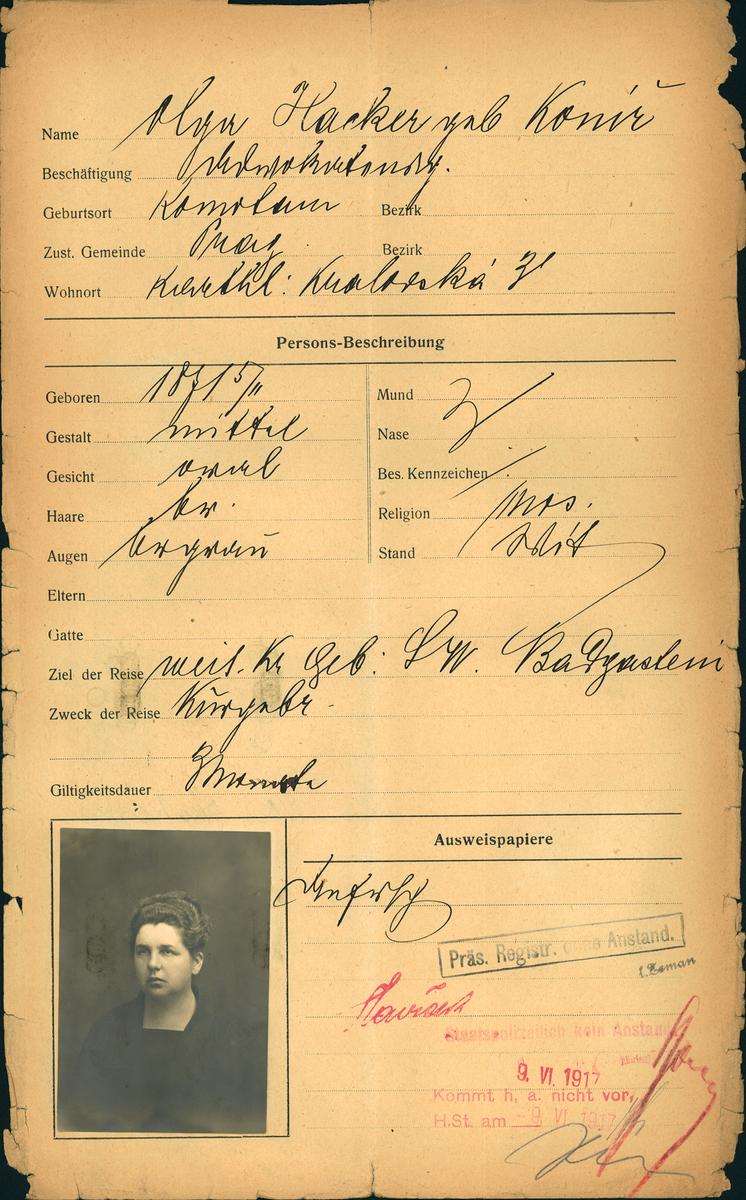 Name Olga Hacker geb Konir
Beschäftigung Advokatensg.
Geburtsort Komotau Bezirk
Zust. Gemeinde Prag Bezirk
Wohnort Karthl: Kralovská 31
Persons-Beschreibung
Geboren 1871 5/11
Mund
Gestalt mittel
Nase
Gesicht oval
Bes. Kennzeichen
Haare br.
Religion Mos.
Augen brgrau
Stand Wit
Eltern
Gatte
Ziel der Reise Geb: Badgastein
Zweck der Reise Kurgebr.
Giltigkeitsdauer 3 Monate
Ausweispapiere
Präs. Registr. ohne Anstand.
Zeman
Staatspolizeilich kein Anstand
9. VI. 1917
Kommt h, a. nicht vor,
H.St. am 9 VI 1917